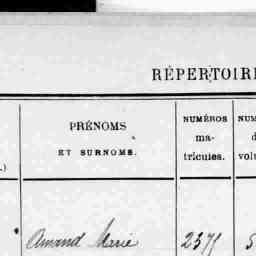 RÉPERTOIRE
PRÉNOMS
ET SURNOMS.
NUMÉROS
ma-
tricules.
Amand Marie
2371
5